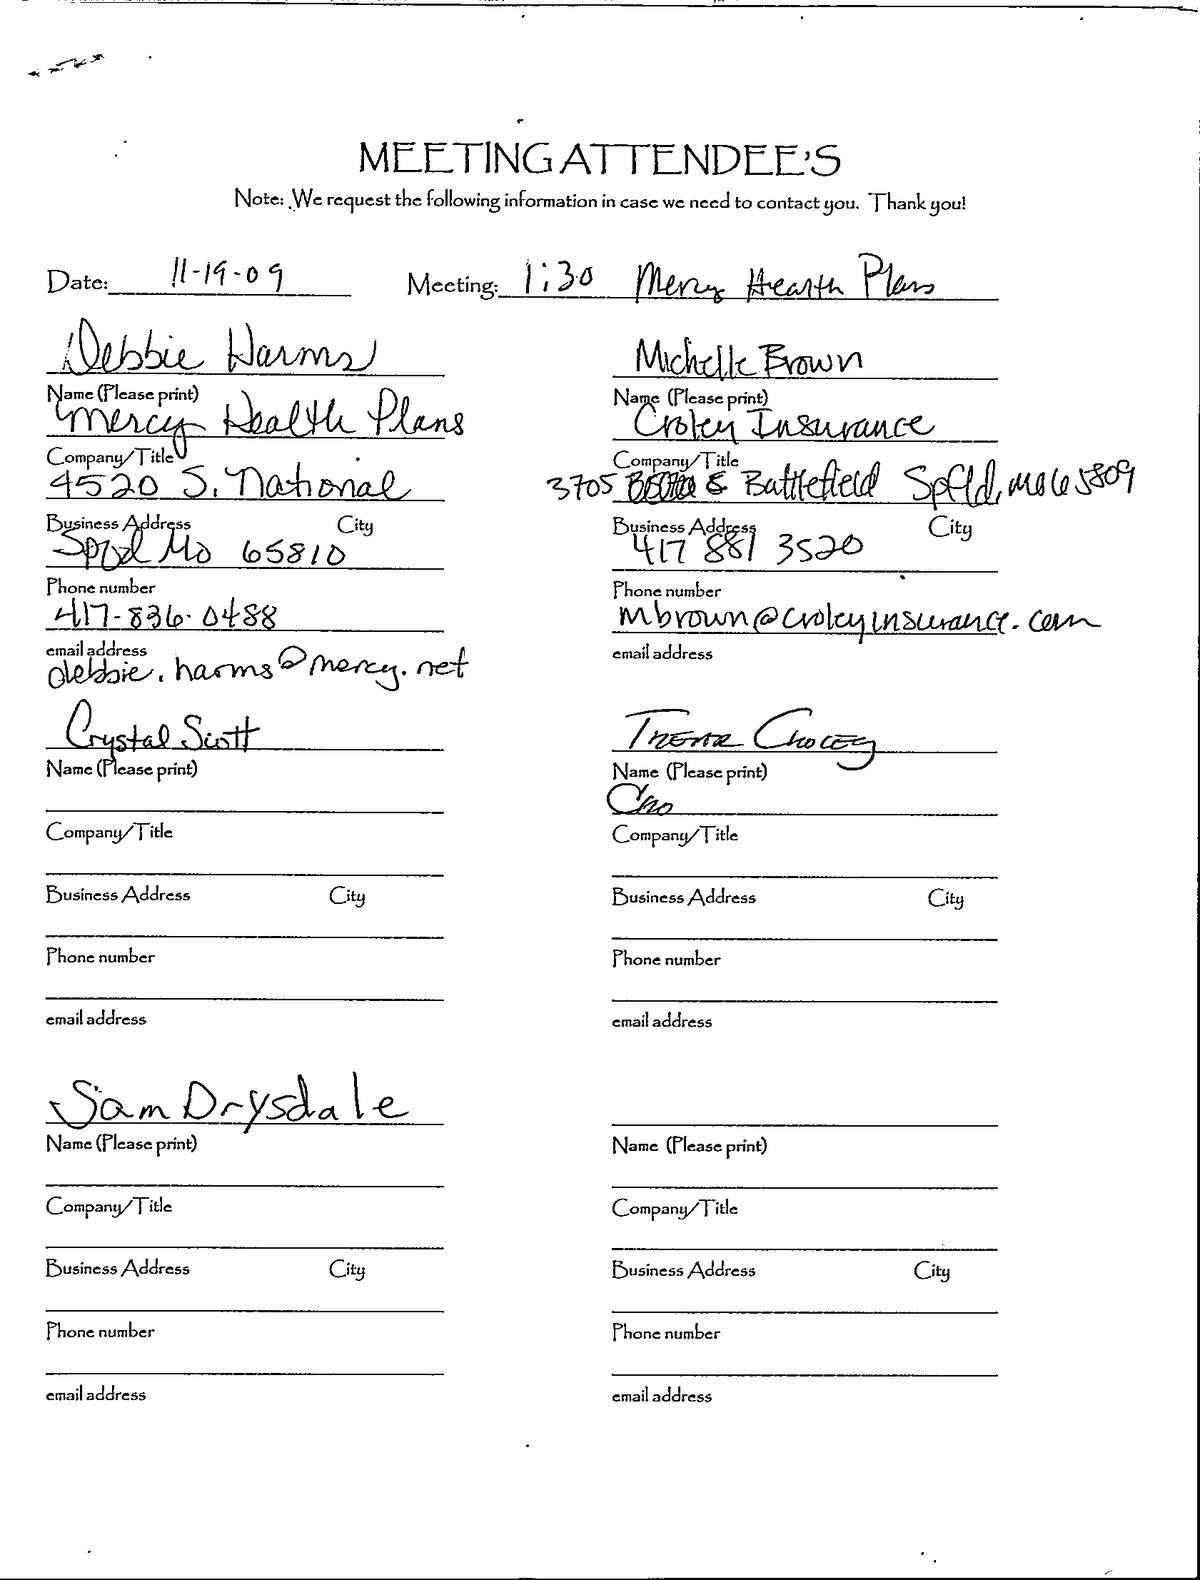 MEETING ATTENDEE'S
Note: We request the following information in case we need to contact you. Thank you!
Date: 11-19-09 Meeting: 1:30 Mercy Hearth Plans
Debbie Harms
Name (Please print)
Mercy Health Plans
Company/Title
4520 S. National
Business Address City
Spgd Mo 65810
Phone number
417-836-0488
email address
debbie.harms@mercy.net
Michelle Brown
Name (Please print)
Croley Insurance
Company/Title
3705 E Battlefield Spfld, Mo 65809
Business Address City
417 881 3520
Phone number
mbrown@croleyinsurance.com
email address
Crystal Scott
Name (Please print)
Company/Title
Business Address City
Phone number
email address
Trevor Croley
Name (Please print)
Cro
Company/Title
Business Address City
Phone number
email address
Sam Drysdale
Name (Please print)
Company/Title
Business Address City
Phone number
email address
Name (Please print)
Company/Title
Business Address City
Phone number
email address